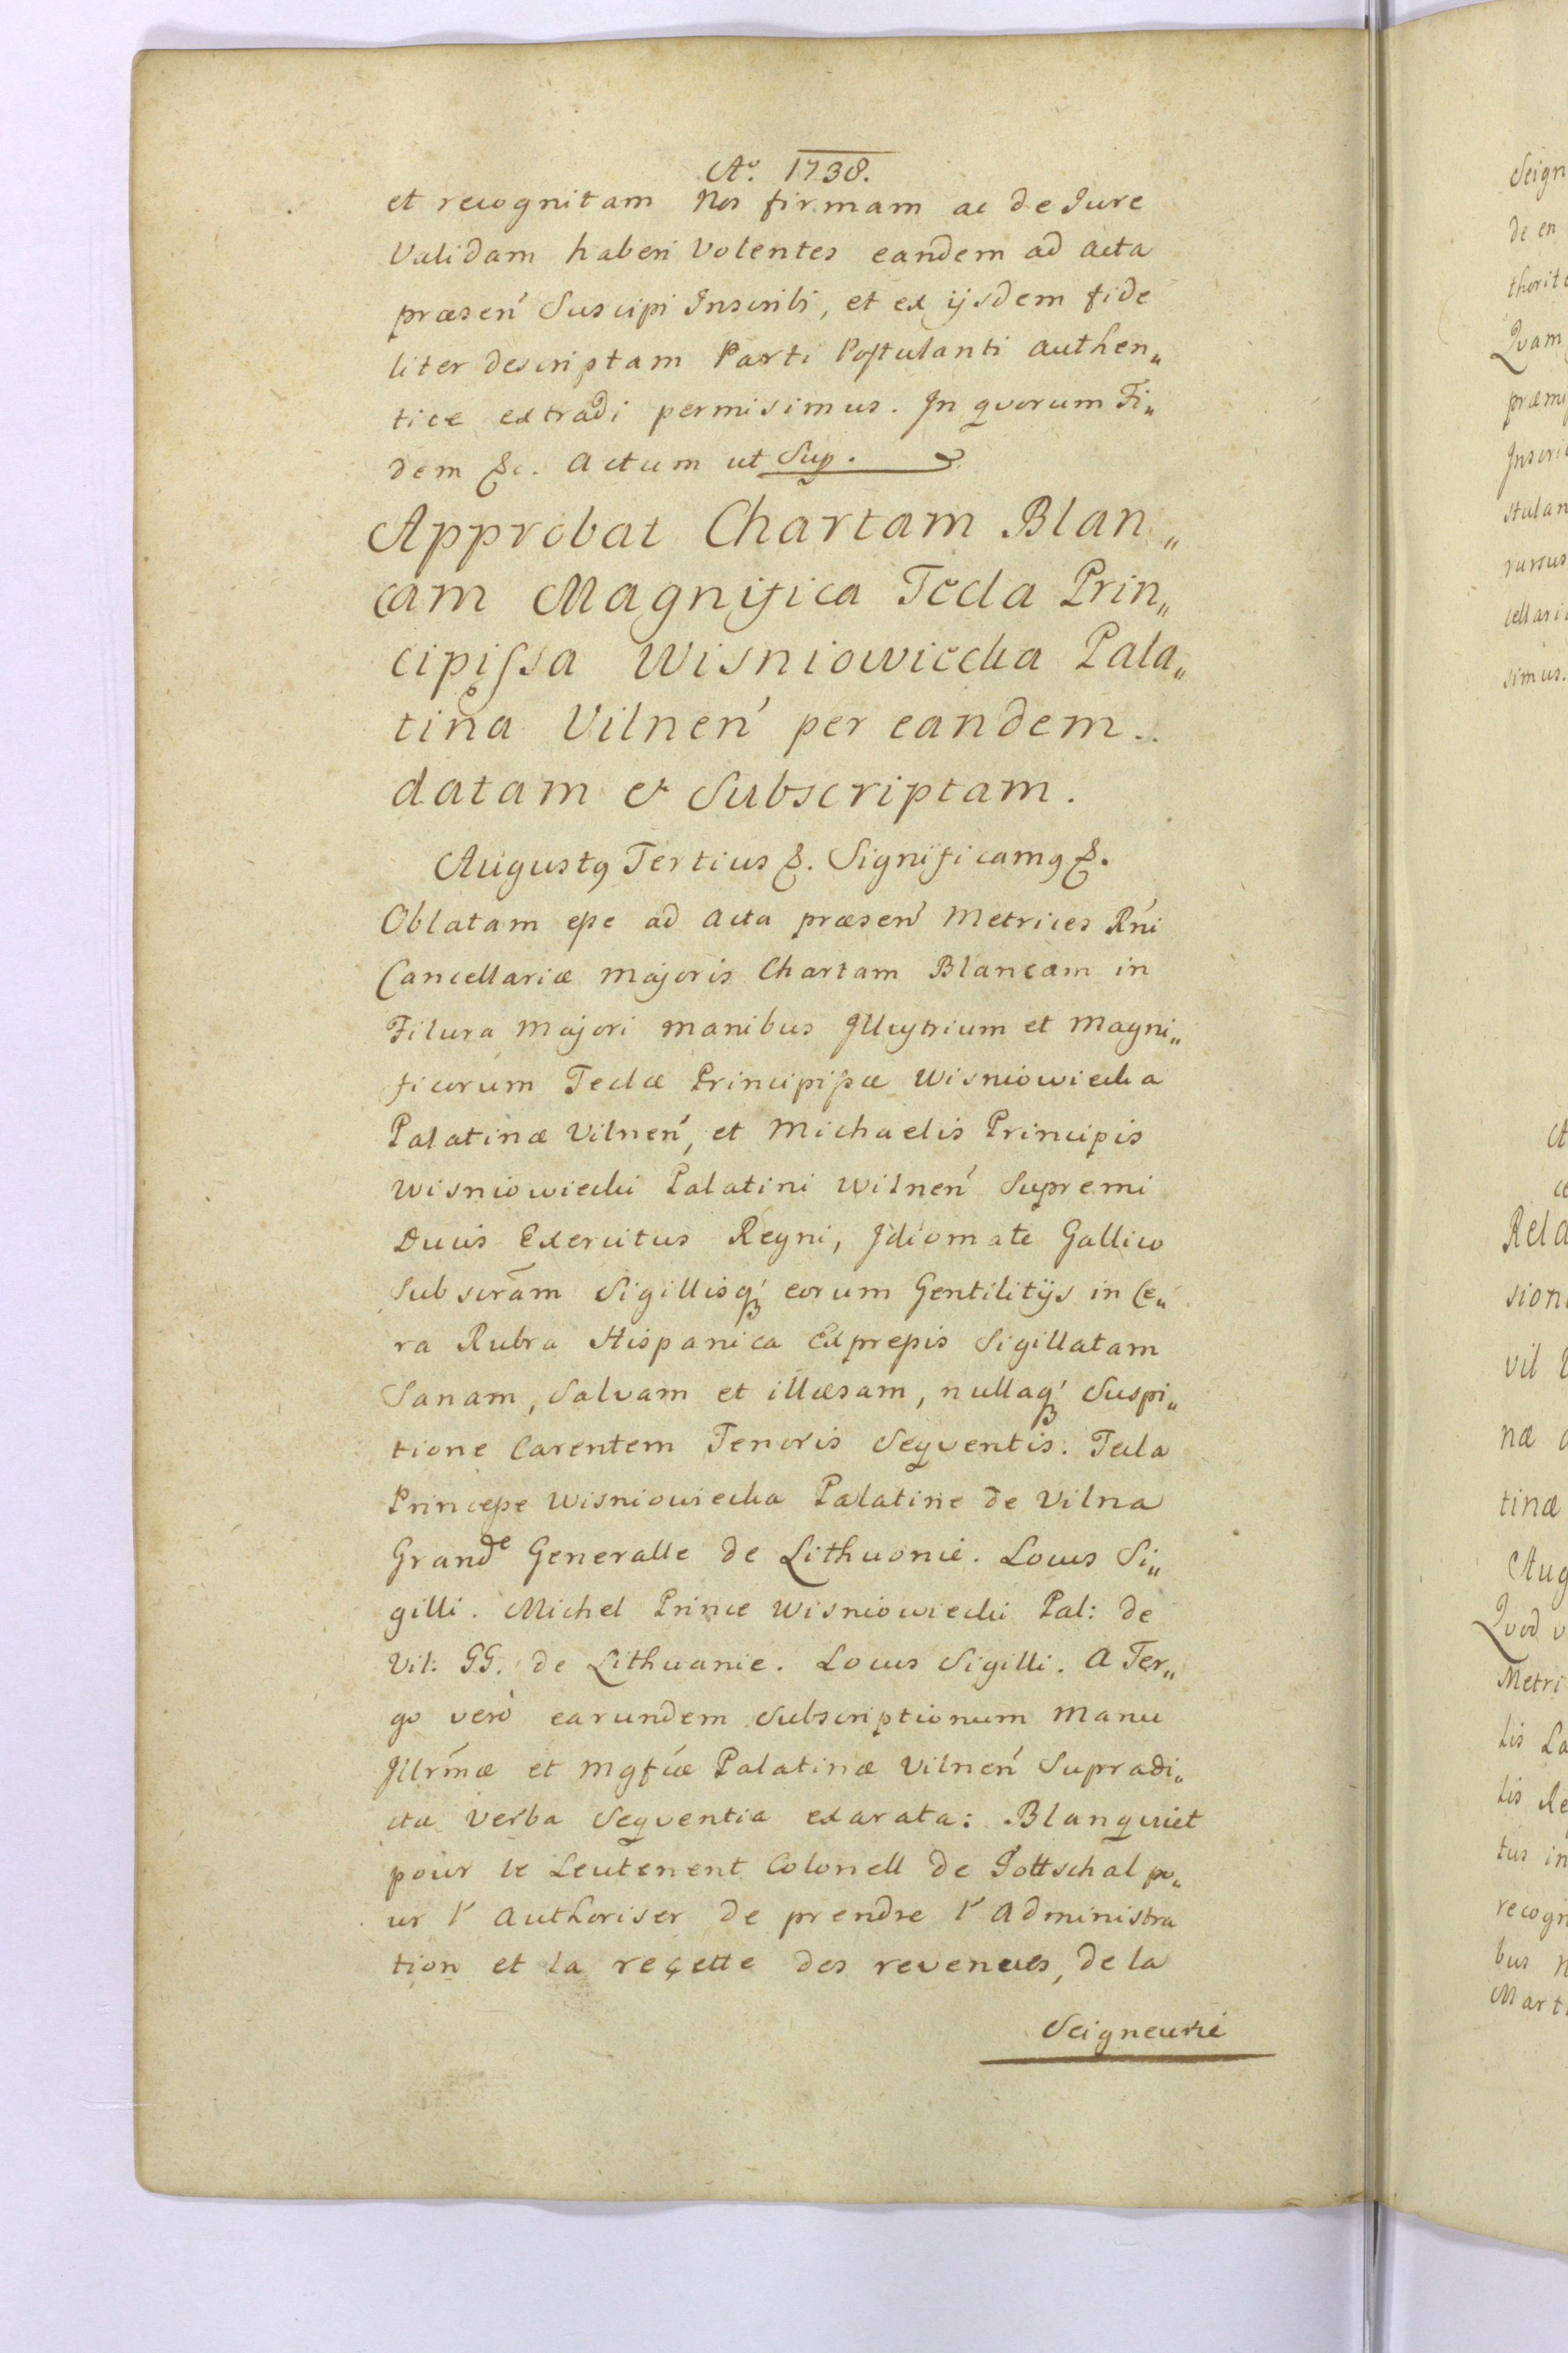 Aº. 1738.
et recognitam Nos firmam ac de Jure
Validam haberi Volentes eandem ad acta
præsen' Suscipi Inscribi, et ex ijsdem fide
liter descriptam Parti Postulanti authen„
tice extradi permisimus. In quorum Fi„
dem &c. Actum ut Sup.
Approbat Chartam Blan„
cam Magnifica Tecla Prin„
cipissa Wisniowiecka Pala„
tina Vilnen' per eandem..
datam et Subscriptam.
Augustq Tertius &. Significamq &.
Oblatam esse ad acta præsen' Metrices Rńi
Cancellariæ Majoris Chartam Blancam in
Filura Majori manibus Illustrium et Magni„
ficorum Teclæ Principissæ Wisniowiecka
Palatinæ Vilnen', et Michaelis Principis
Wisniowiecki Palatini Wilnen' Supremi
Ducis Exercitus Regni, Idiomate Gallico
Subscrãm Sigillisq' eorum Gentilitijs in Ce„
ra Rubra Hispanica Expressis Sigillatam
Sanam, Salvam et illæsam, nullaq' Suspi„
tione Carentem Tenoris Sequentis. Tecla
Princesse Wisniowiecka Palatine de Vilna
Grande Generalle de Lithuonie. Locus Si„
gilli. Michel Prince Wisniowiecki Pal: de
Vil: GG. de Lithuanie. Locus Sigilli. A Ter„
go verò earundem Subscriptionum Manu
Illrḿæ et Mgfcæ Palatinæ Vilnen' Supradi„
ctæ Verba Sequentia exarata: Blanquiet
pour le Leutenent Colonell de Gottschal po„
ur l' Authoriser de prendre l' Administra
tion et la reçette des revenues, de la
Seigneurie
Seign
de en
Quam
præmi
stulan
rursus
simus.
Rela
sion
vil
næ
tinæ
Aug
Quod v
Metri
lis La
lis Re
tus in
recogn
bus n
Mart